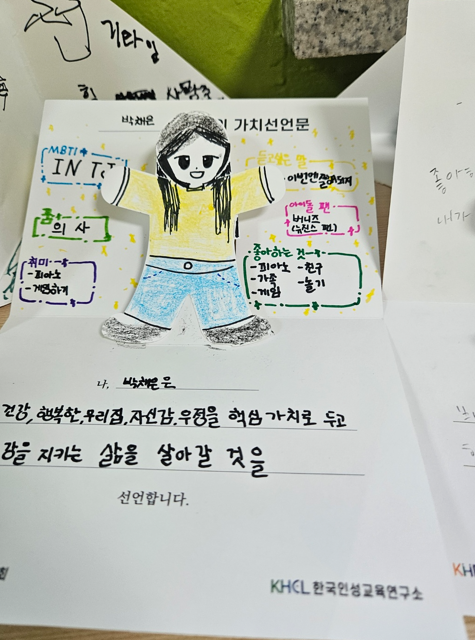 기타임
박채은 의 가치선언문
MBTI
INTJ
듣고싶은 말
꿈
의사
아이돌 팬
버니즈
(뉴진스 팬)
취미
-피아노
-게임하기
좋아하는 것
-피아노 -친구
-가족 -놀기
-게임
나, 박채은은
건강, 행복한, 우리집, 자신감, 우정을 핵심 가치로 두고
강을 지키는 삶을 살아갈 것을
선언합니다.
회
KHCL 한국인성교육연구소
KH
좋아
내가